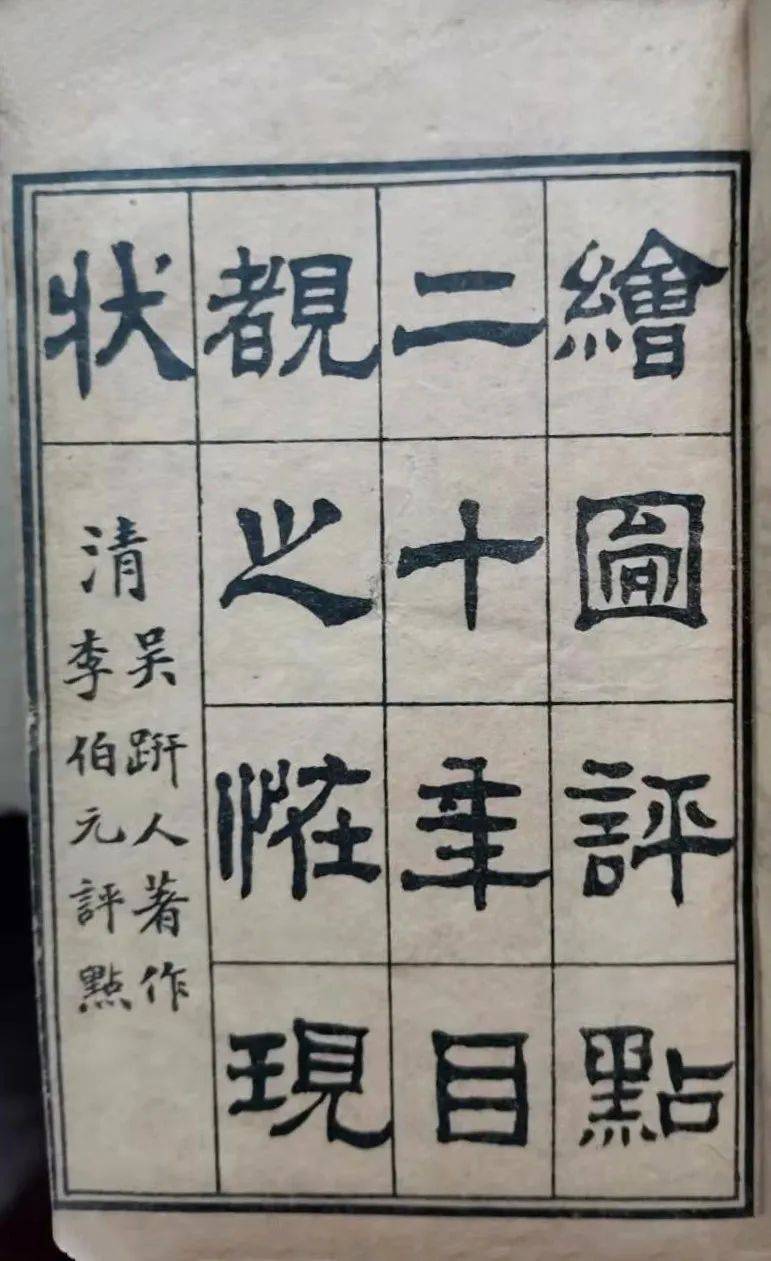 繪圖評點
二十年目
覩之怪現
狀
清
吳趼人著作
李伯元評點